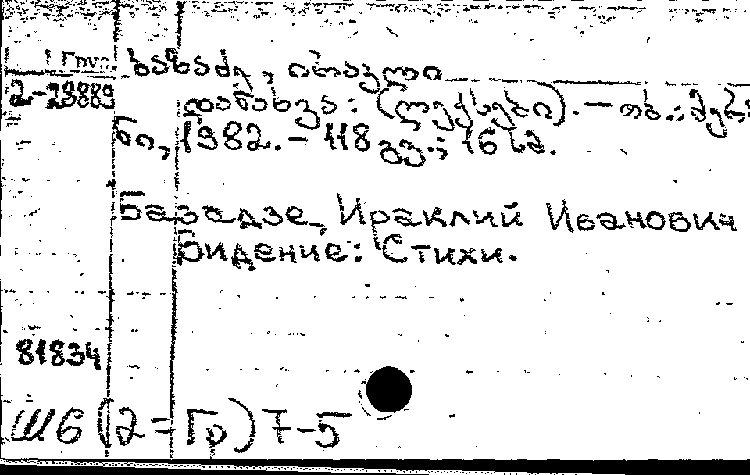 1 Груз. ბაზაძე, ირაკლი
2-29889 დანახვა: (ლექსები). — თბ.: მერა
ნი, 1982. – 118 გვ.; 16 სმ.
Базадзе, Ираклий Иванович
Видение: Стихи.
81834
Ш6(2=Гр)7-5